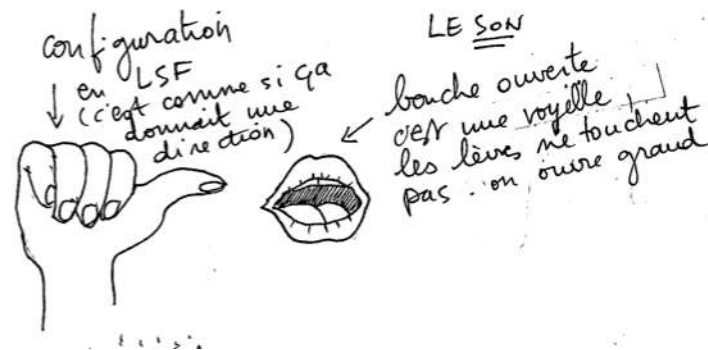 configuration
en LSF
(c'est comme si ça
donnait une
direction)
LE SON
bouche ouverte
c'est une voyelle,
les lèvres ne touchent
pas. on ouvre grand